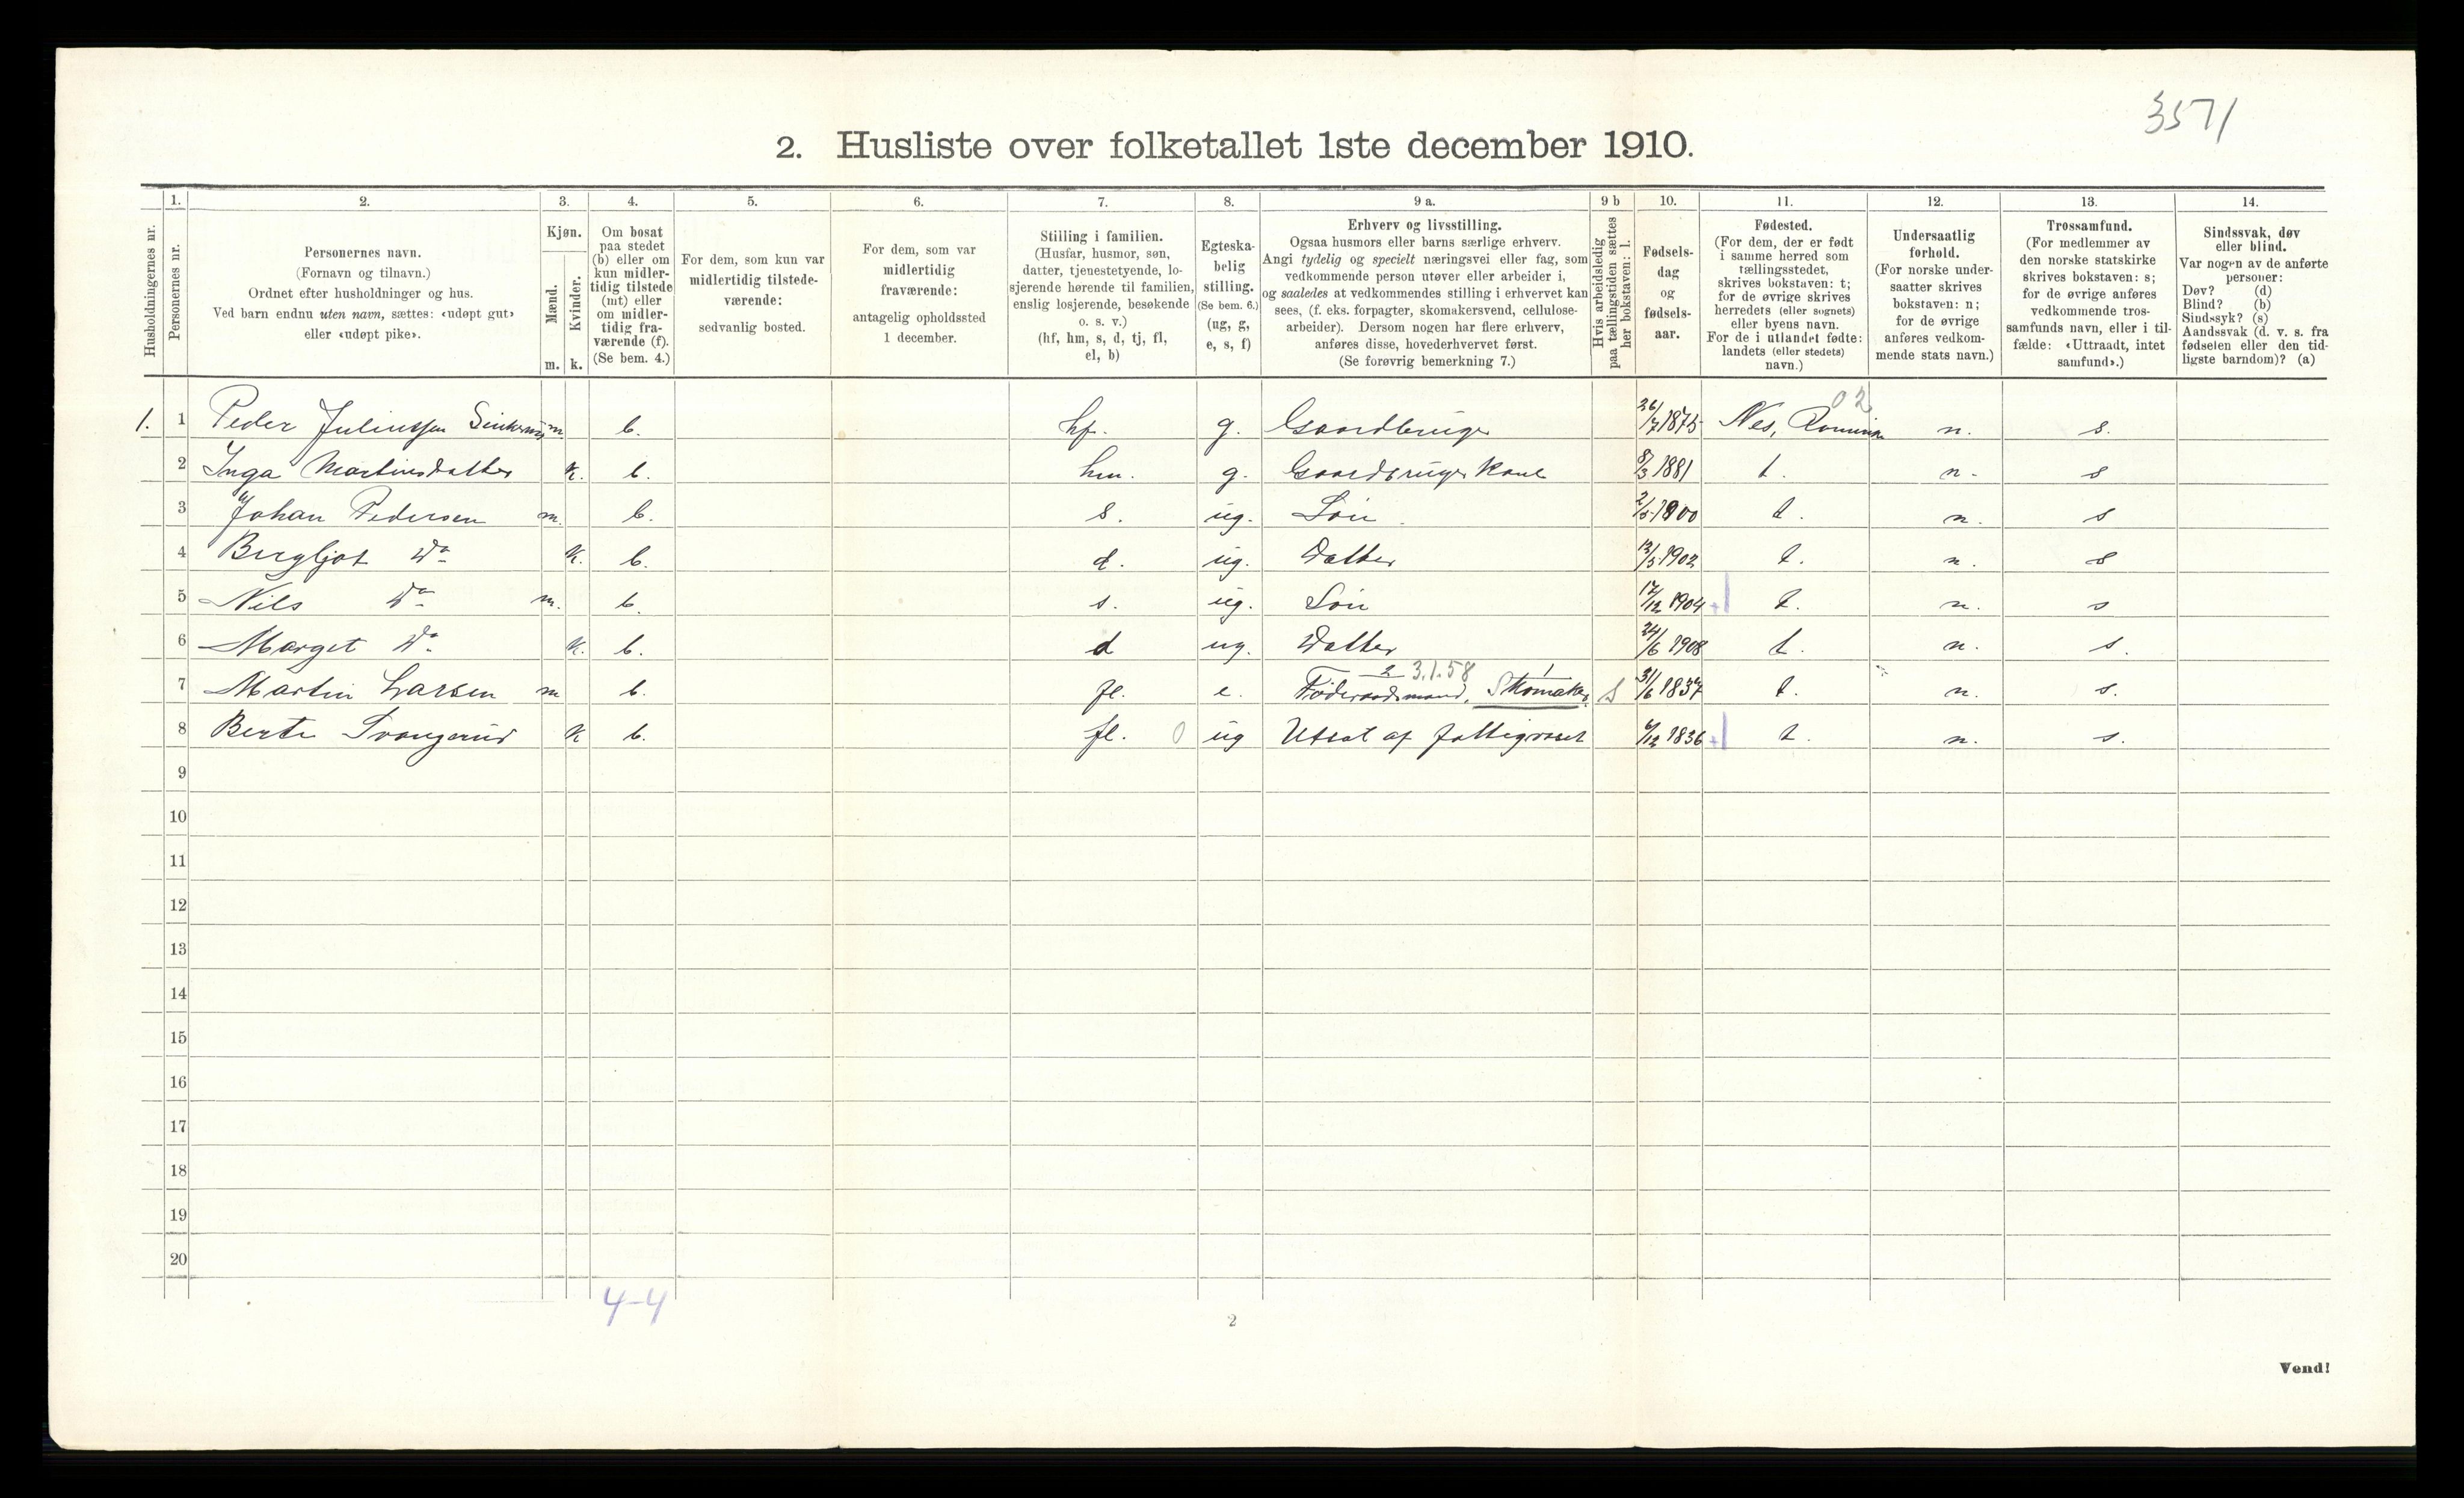 3571
2. Husliste over folketallet 1ste december 1910.
Husholdningernes nr.
1.
Personernes nr.
2.
Personernes navn.
(Fornavn og tilnavn.)
Ordnet efter husholdninger og hus.
Ved barn endnu uten navn, sættes: «udøpt gut»
eller «udøpt pike».
3.
Kjøn.
Mænd.
Kvinder.
m. k.
4.
Om bosat
paa stedet
(b) eller om
kun midler-
tidig tilstede
(mt) eller
om midler-
tidig fra-
værende (f).
(Se bem. 4.)
5.
For dem, som kun var
midlertidig tilstede-
værende:
sedvanlig bosted.
6.
For dem, som var
midlertidig
fraværende:
antagelig opholdssted
1 december.
7.
Stilling i familien.
(Husfar, husmor, søn,
datter, tjenestetyende, lo-
sjerende hørende til familien,
enslig losjerende, besøkende
o. s. v.)
(hf, hm, s, d, tj, fl,
el, b)
8.
Egteska-
belig
stilling.
(Se bem. 6.)
(ug, g,
e, s, f)
9 a.
Erhverv og livsstilling.
Ogsaa husmors eller barns særlige erhverv.
Angi tydelig og specielt næringsvei eller fag, som
vedkommende person utøver eller arbeider i,
og saaledes at vedkommendes stilling i erhvervet kan
sees, (f. eks. forpagter, skomakersvend, cellulose-
arbeider). Dersom nogen har flere erhverv,
anføres disse, hovederhvervet først.
(Se forøvrig bemerkning 7.)
9 b
Hvis arbeidsledig
paa tællingstiden sættes
her bokstaven: l.
10.
Fødsels-
dag
og
fødsels-
aar.
11.
Fødested.
(For dem, der er født
i samme herred som
tællingsstedet,
skrives bokstaven: t;
for de øvrige skrives
herredets (eller sognets)
eller byens navn.
For de i utlandet fødte:
landets (eller stedets)
navn.)
12.
Undersaatlig
forhold.
(For norske under-
saatter skrives
bokstaven: n;
for de øvrige
anføres vedkom-
mende stats navn.)
13.
Trossamfund.
(For medlemmer av
den norske statskirke
skrives bokstaven: s;
for de øvrige anføres
vedkommende tros-
samfunds navn, eller i til-
fælde: «Uttraadt, intet
samfund».)
14.
Sindssvak, døv
eller blind.
Var nogen av de anførte
personer:
Døv? (d)
Blind? (b)
Sindssyk? (s)
Aandssvak (d. v. s. fra
fødselen eller den tid-
ligste barndom)? (a)
02
1. 1 Peder Juliussen m. b. hf. g. Gaardbruger 26/7 1875 Nes, n. s.
2 Inga Martinsdatter k. b. hm. g. Gaardbruger Kone 8/3 1881 t. n. s
3 Johan Pedersen m. b. s. ug. Søn 2/5 1900 t. n. s
4 Bergljot Do k. b. d. ug. Datter 12/5 1902 t. n. s
5 Nils Do m. b. s. ug. Søn 17/12 1904 t. n. s
6 Marget Do k. b. d ug. Datter 24/6 1908 t. n. s.
2 3.1.58 1
7 Martin Larsen m b. fl. e. Føderaadsmand, Skomaker s 31/6 1837 t. n. s.
8 Berte k b. fl. 0 ug Utsat af fattigvæset 6/12 1836 t. n. s.
9
10
11
12
13
14
15
16
17
18
19
20
4-4
2
Vend!